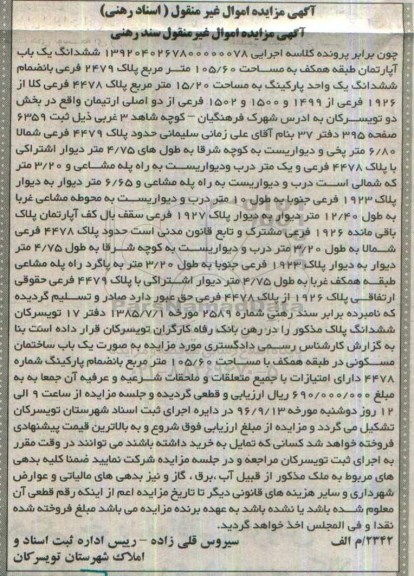 آگهی مزایده اموال غیر منقول ( اسناد رهنی)
آگهی مزایده اموال غیرمنقول سند رهنی
چون برابر پرونده کلاسه اجرایی ۱۳۹۲۰۴۰۲۶۷۸۰۰۰۰۰۰۷۸ ششدانگ یک باب
آپارتمان طبقه همکف به مساحت ۱۰۵/۶۰ متر مربع پلاک ۲۴۷۹ فرعی بانضمام
ششدانگ یک واحد پارکینگ به مساحت ۱۵/۲۰ متر مربع پلاک ۴۴۷۸ فرعی کلا از
۱۹۲۶ فرعی از ۱۴۹۹ و ۱۵۰۰ و ۱۵۰۲ فرعی از دو اصلی ارتیمان واقع در بخش
دو تویسرکان به ادرس شهرک فرهنگیان – کوچه شاهد ۳ غربی ذیل ثبت ۶۳۵۹
صفحه ۳۹۵ دفتر ۳۷ بنام آقای علی زمانی سلیمانی حدود پلاک ۴۴۷۹ فرعی شمالا
۶/۸۰ متر پخی و دیواریست به کوچه شرقا به طول های ۴/۷۵ متر دیوار اشتراکی
با پلاک ۴۴۷۸ فرعی و یک متر درب ودیواریست به راه پله مشاعی و ۳/۲۰ متر
که شمالی است درب و دیواریست به راه پله مشاعی و ۶/۶۵ متر دیوار به دیوار
پلاک ۱۹۲۳ فرعی جنوبا به طول ۱۰ متر درب و دیواریست به محوطه مشاعی غربا
به طول ۱۲/۴۰ متر دیوار به دیوار پلاک ۱۹۲۷ فرعی سقف بال کف آپارتمان پلاک
باقی مانده ۱۹۲۶ فرعی مشترک و تابع قانون مدنی است حدود پلاک ۴۴۷۸ فرعی
شمالا به طول ۳/۲۰ متر درب و دیواریست به کوچه شرقا به طول ۴/۷۵ متر
دیوار به دیوار پلاک ۱۹۲۳ فرعی جنوبا به طول ۳/۲۰ متر به پاگرد راه پله مشاعی
طبقه همکف غربا به طول ۴/۷۵ متر دیوار اشتراکی با پلاک ۴۴۷۹ فرعی حقوقی
ارتفاقی پلاک ۱۹۲۶ از پلاک ۴۴۷۸ فرعی حق عبور دارد صادر و تسلیم گردیده
که نامبرده برابر سند رهنی شماره ۲۵۸۹ مورخه ۱۳۸۵/۷/۱ دفتر ۱۷ تویسرکان
ششدانگ پلاک مذکور را در رهن بانک رفاه کارگران تویسرکان قرار داده است بنا
به گزارش کارشناس رسمی دادگستری مورد مزایده به صورت یک باب ساختمان
مسکونی در طبقه همکف با مساحت ۱۰۵/۶۰ متر مربع بانضمام پارکینگ شماره
۴۴۷۸ دارای امتیازات با جمیع متعلقات و ملحقات شرعیه و عرفیه آن جمعا به
مبلغ ۶۹۰/۰۰۰/۰۰۰ ریال ارزیابی و قطعی گردیده و جلسه مزایده از ساعت ۹ الی
۱۲ روز دوشنبه مورخه ۹۶/۹/۱۳ در دایره اجرای ثبت اسناد شهرستان تویسرکان
تشکیل می گردد و مزایده از مبلغ ارزیابی فوق شروع و به بالاترین قیمت پیشنهادی
فروخته خواهد شد کسانی که تمایل به خرید داشته باشند می توانند در وقت مقرر
به اجرای ثبت تویسرکان مراجعه و در جلسه مزایده شرکت نمایند ضمنا کلیه بدهی
های مربوط به ملک مذکور از قبیل آب ،برق ، گاز و نیز بدهی های مالیاتی و عوارض
شهرداری و سایر هزینه های قانونی دیگر تا تاریخ مزایده اعم از اینکه رقم قطعی آن
معلوم شده باشد یا نشده باشد به عهده برنده مزایده می باشد مبلغ فروخته شده
نقدا و فی المجلس اخذ خواهد گردید.
۲۳۴۲/م الف سیروس قلی زاده – رییس اداره ثبت اسناد و
املاک شهرستان تویسرکان